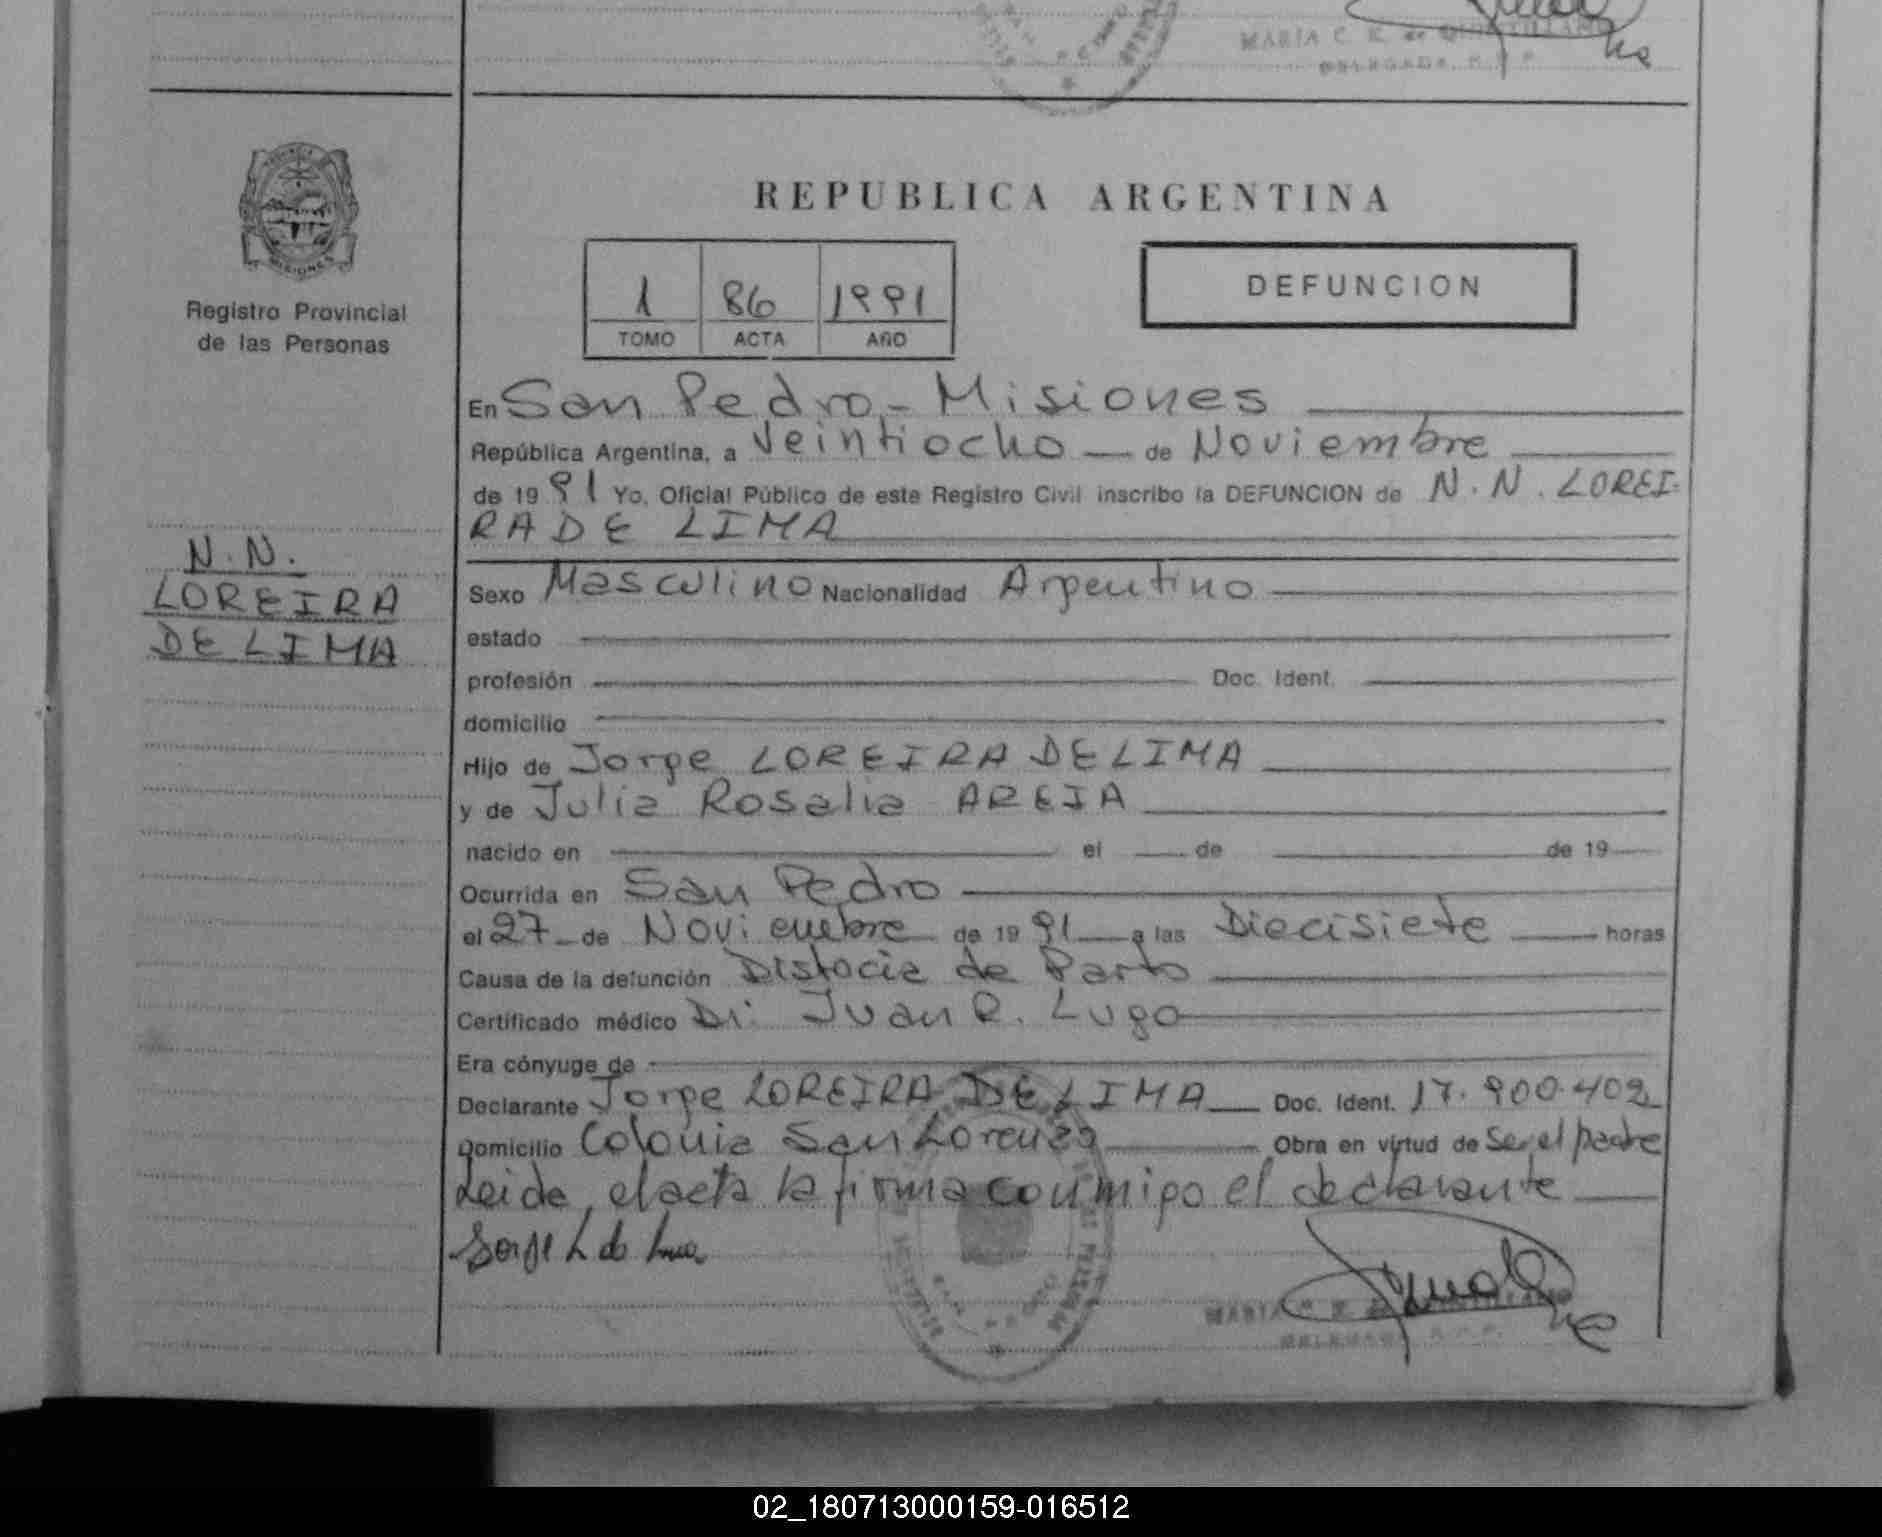 MARÍA C. E. de
DELEGADA R.P.P.
PROVINCIA DE
MISIONES
Registro Provincial
de las Personas
N.N.
LOREIRA
DE LIMA
REPUBLICA ARGENTINA
1 86 1991
TOMO ACTA AÑO
DEFUNCION
En San Pedro - Misiones
República Argentina, a Veintiocho de Noviembre
de 1991 Yo, Oficial Público de este Registro Civil inscribo la DEFUNCION de N.N. LOREI-
RA DE LIMA
Sexo Masculino Nacionalidad Argentino
estado
profesión Doc. Ident.
domicilio
Hijo de Jorge LOREIRA DE LIMA
y de Julia Rosalia AREJA
nacido en el de de 19
Ocurrida en San Pedro
el 27 de Noviembre de 1991 a las Diecisiete horas
Causa de la defunción Distocia de Parto
Certificado médico Dr. Juan R. Lugo
Era cónyuge de
Declarante Jorge LOREIRA DE LIMA Doc. Ident. 17.900.402
Domicilio Colonia San Lorenzo Obra en virtud de Ser el padre
Leida el acta la firma conmigo el declarante
Jorge L de Lima
MARIA C. E. de
DELEGADA R.P.P.
02_180713000159-016512